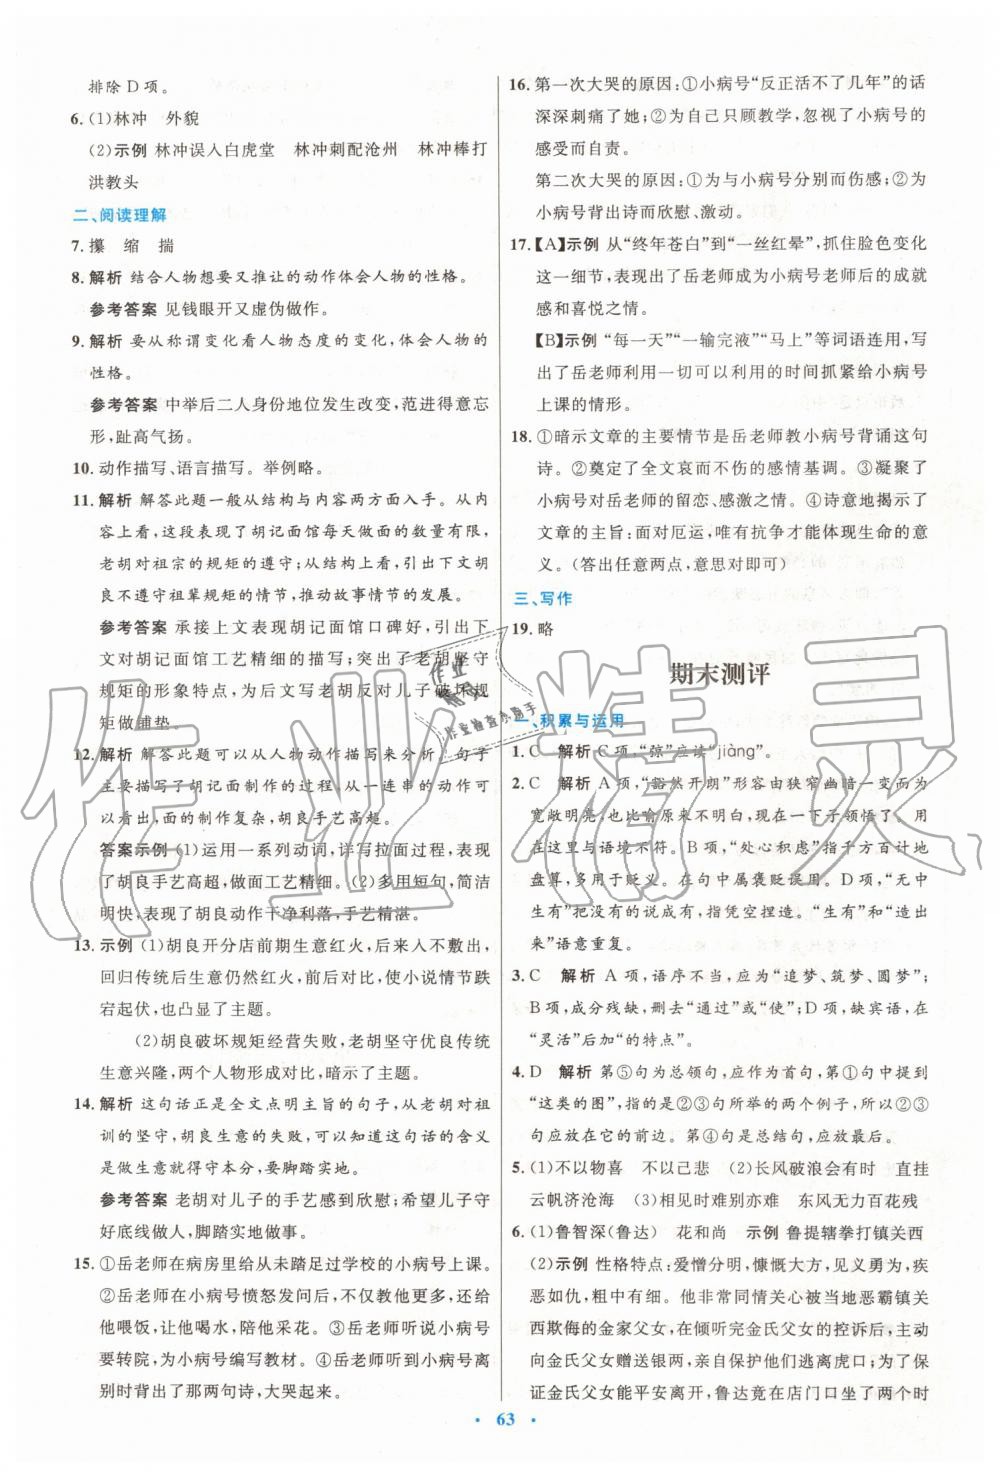 排除D项。
6. (1)林冲　外貌
(2)示例　林冲误入白虎堂　林冲刺配沧州　林冲棒打
洪教头
二、阅读理解
7. 攥　缩　揣
8. 解析　结合人物想要又推让的动作体会人物的性格。
参考答案　见钱眼开又虚伪做作。
9. 解析　要从称谓变化看人物态度的变化,体会人物的
性格。
参考答案　中举后二人身份地位发生改变,范进得意忘
形,趾高气扬。
10. 动作描写、语言描写。举例略。
11. 解析　解答此题一般从结构与内容两方面入手。从内
容上看,这段表现了胡记面馆每天做面的数量有限,
老胡对祖宗的规矩的遵守;从结构上看,引出下文胡
良不遵守祖辈规矩的情节,推动故事情节的发展。
参考答案　承接上文表现胡记面馆口碑好,引出下
文对胡记面馆工艺精细的描写;突出了老胡坚守
规矩的形象特点,为后文写老胡反对儿子破坏规
矩做铺垫。
12. 解析　解答此题可以从人物动作描写来分析。句子
主要描写了胡记面制作的过程,从一连串的动作可
以看出,面的制作复杂,胡良手艺高超。
答案示例　(1)运用一系列动词,详写拉面过程,表现
了胡良手艺高超,做面工艺精细。(2)多用短句,简洁
明快,表现了胡良动作干净利落,手艺精湛。
13. 示例　(1)胡良开分店前期生意红火,后来人不敷出,
回归传统后生意仍然红火,前后对比,使小说情节跌
宕起伏,也凸显了主题。
(2)胡良破坏规矩经营失败,老胡坚守优良传统
生意兴隆,两个人物形成对比,暗示了主题。
14. 解析　这句话正是全文点明主旨的句子,从老胡对祖
训的坚守,胡良生意的失败,可以知道这句话的含义
是做生意就得坚守本分,要脚踏实地。
参考答案　老胡对儿子的手艺感到欣慰;希望儿子守
好底线做人,脚踏实地做事。
15. ①岳老师在病房里给从未踏足过学校的小病号上课。
②岳老师送小病号愤怒发问后,不仅教他更多,还给
他喂饭,让他喝水,陪他采花。③岳老师听说小病号
要转院,为小病号编写教材。④岳老师与小病号离
别时背了那两句诗,大哭起来。
16. 第一次大哭的原因:①小病号“反正活不了几年”的话
深深刺痛了她;②为自己只顾教学,忽视了小病号的
感受而自责。
第二次大哭的原因:①为与小病号分别而伤感;②为
小病号背出诗而欣慰、激动。
17.【A】示例　从“终年苍白”到“一丝红晕”,抓住脸色变化
这一细节,表现出了岳老师成为小病号老师后的成就
感和喜悦之情。
【B】示例　“每一天”“一输完液”“马上”等词语连用,写
出了岳老师利用一切可以利用的时间抓紧给小病号
上课的情形。
18. ①暗示文章的主要情节是岳老师教小病号背诵这句
诗。②奠定了全文哀而不伤的感情基调。③凝聚了
小病号对岳老师的留恋、感激之情。④诗意地揭示了
文章的主旨:面对厄运,唯有抗争才能体现生命的意
义。(答出任意两点,意思对即可)
三、写作
19. 略
期末测评
一、积累与运用
1. C　解析　C项,“强”应读“jiàng”。
2. C　解析　A项,“豁然开朗”形容由狭窄幽暗一变而为
宽敞明亮,也比喻原来不明白,现在一下子领悟了。用
在这里与语境不符。B项,“处心积虑”指千方百计地
盘算,多用于贬义。在句中属褒贬误用。D项,“无中
生有”把没有的说成有,指凭空捏造。“生有”和“造出
来”语意重复。
3. C　解析　A项,语序不当,应为“追梦、筑梦、圆梦”;
B项,成分残缺,删去“通过”或“使”;D项,缺宾语,在
“灵活”后加“的特点”。
4. D　解析　第⑤句为总领句,应作为首句,第①句中提到
“这类的图”,指的是②③句所举的两个例子,所以②③
句应放在它的前边。第④句是总结句,应放最后。
5. (1)不以物喜　不以己悲　(2)长风破浪会有时　直挂
云帆济沧海　(3)相见时难别亦难　东风无力百花残
6. (1)鲁智深(鲁达)　花和尚　示例　鲁提辖拳打镇关西
(2)示例　性格特点:爱憎分明,慷慨大方,见义勇为,疾
恶如仇,粗中有细。他非常同情关心被当地恶霸镇关
西欺侮的金家父女,在倾听完金氏父女的控诉后,主动
向金氏父女赠送银两,让他们逃离虎口;为了保
证金氏父女能平安离开,鲁达竟在店门口坐了两个时
63
作业精灵
作业
精灵
作业检查小助手